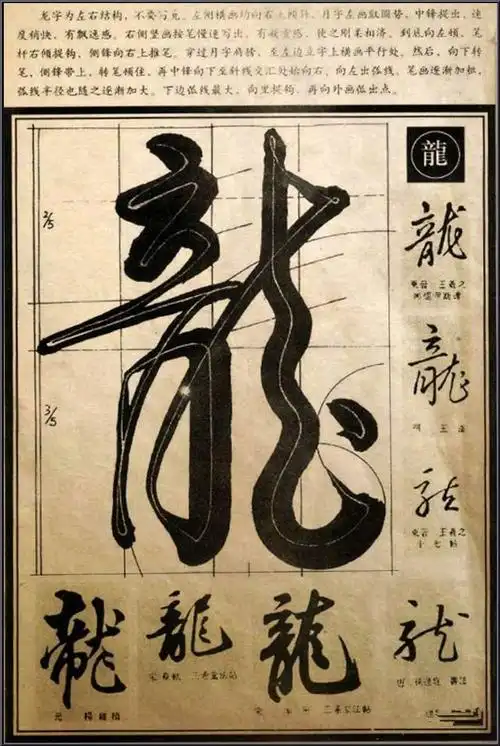 龙字为左右结构，不要写宽。左侧横画均向右上倾斜，月字左画取圆势，中锋提出，速
度稍快，有飘逸感。右侧竖画按笔慢速写出，有凝重感，使之刚柔相济，到底向左顿，笔
杆右倾提钩，侧锋向右上推笔。穿过月字肩膀，至左边立字上横画平行处。然后，向下转
笔，侧锋带上，转笔顿住，再中锋向下至斜线交汇处始向右、向左出弧线。笔画逐渐加粗，
弧线半径也随之逐渐加大。下边弧线最大，向里提钩，再向外画弧出点。
龍
2/5
龍
龍
東晋 王羲之
龍
明 王
3/5
龍
東晋 王羲之
十七帖
龍
龍
龍
龍
元 楊維楨
宋
三希堂法帖
宋
三希堂法帖
唐 孫過庭 書譜